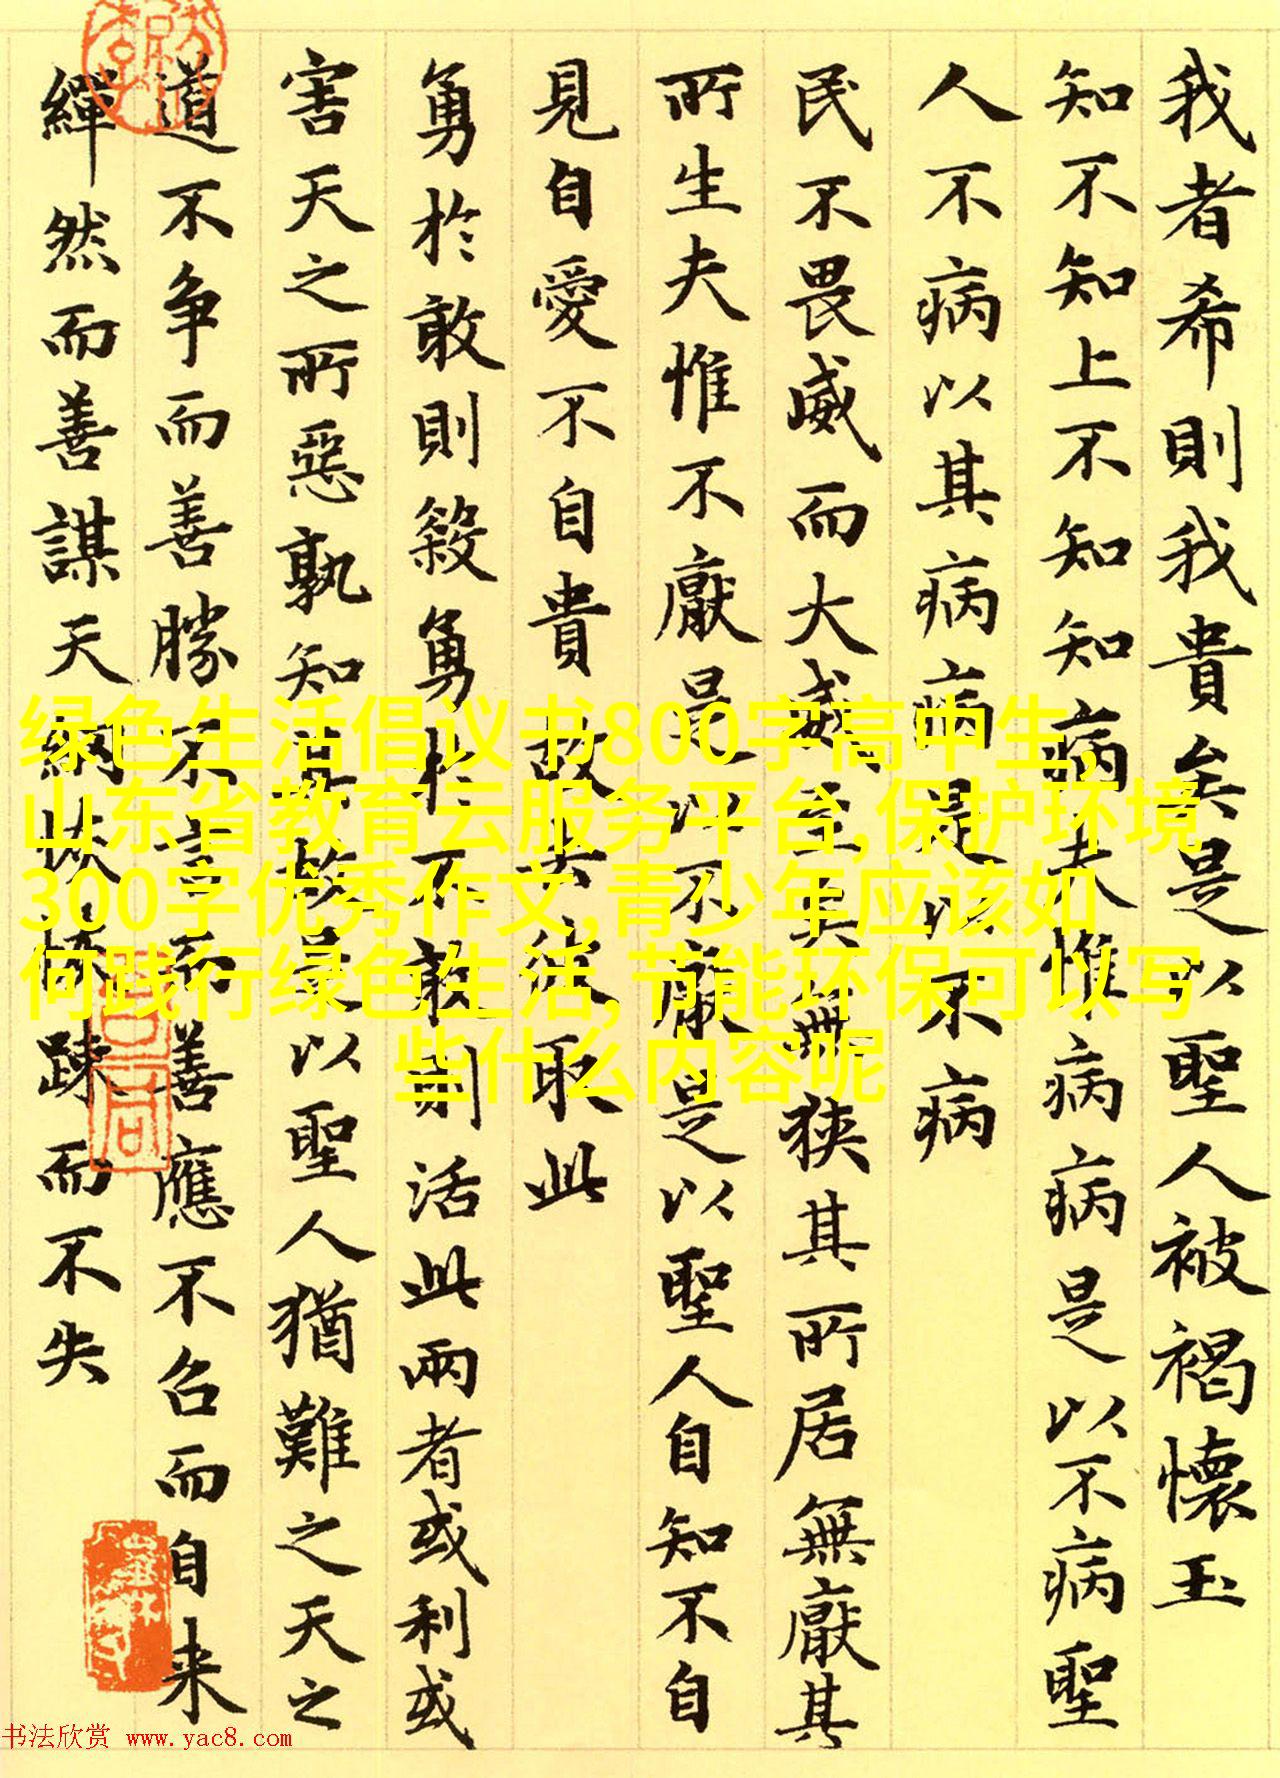 我者希則我貴矣是以聖人被褐懷玉
知不知上不知知病夫惟病病是以不病聖
人不病以其病病是以不病
民不畏威而大威至矣無狹其所居無厭其
所生夫惟不厭是以不厭是以聖人自知不自
見自愛不自貴故去彼取此
勇於敢則殺勇於不敢則活此兩者或利或
害天之所惡孰知其故是以聖人猶難之天之
道不争而善勝不言而善應不召而自来
繟然而善謀天網恢恢踈而不失
绿色生活倡议书800字高中生,
山东省教育云服务平台,保护环境
300字优秀作文,青少年应该如
何践行绿色生活,节能环保可以写
些什么内容呢
书法欣赏 www.yac8.com